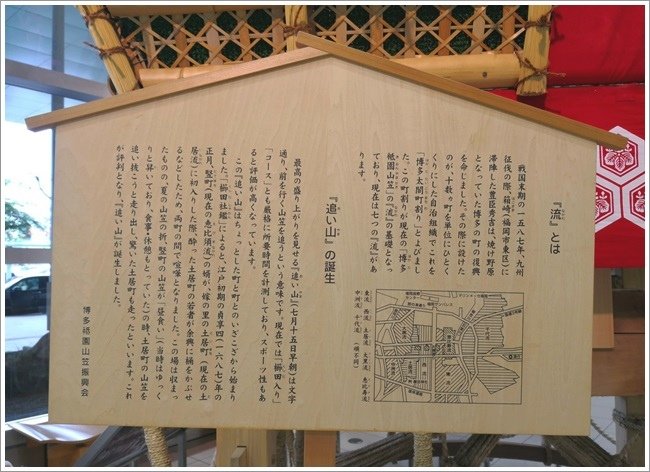 『流』とは
戦国末期の一五八七年、九州
征伐の際、箱崎(福岡市東区)に
滞陣した豊臣秀吉は、焼け野原
となっていた博多の町の復興
を命じました。その際に設けた
のが、十数ヶ町を単位にひとく
くりにした自治組織で、これを
「博多太閤町割り」とよびまし
た。この町割りが現在の「博多
祇園山笠」の「流」の基礎となっ
ており、現在は七つの「流」があ
ります。
東流 西流 土居流 大黒流 恵比寿流
中洲流 千代流 (順不同)
『追い山』の誕生
最高の盛り上がりを見せる『追い山』(七月十五日早朝)は文字
通り、前を行く山笠を追うという意味です。現在では「櫛田入り」
「コース」とも厳格に所要時間を計測しており、スポーツ性もあ
ると評価が高くなっています。
この『追い山』はちょっとした町と町とのいざこざから始まり
ました。「櫛田社鑑」によると、江戸初期の貞享四(一六八七)年の
正月、竪町(現在の恵比須流)の婿が、嫁の里の土居町(現在の土
居流)に初入りした際、酔った土居町の若者が余興に桶をかぶせ
るなどしたため両町の間で喧嘩となりました。この場は収まっ
たものの、夏の山笠の折、竪町の山笠が「昼食い」(当時はゆっく
りと舁いており、食事も休憩もとっていた)の時、土居町の山笠を
追い抜こうと走り出し、驚いた土居町も走ったといいます。これ
が評判となり『追い山』が誕生しました。
博多祇園山笠振興会